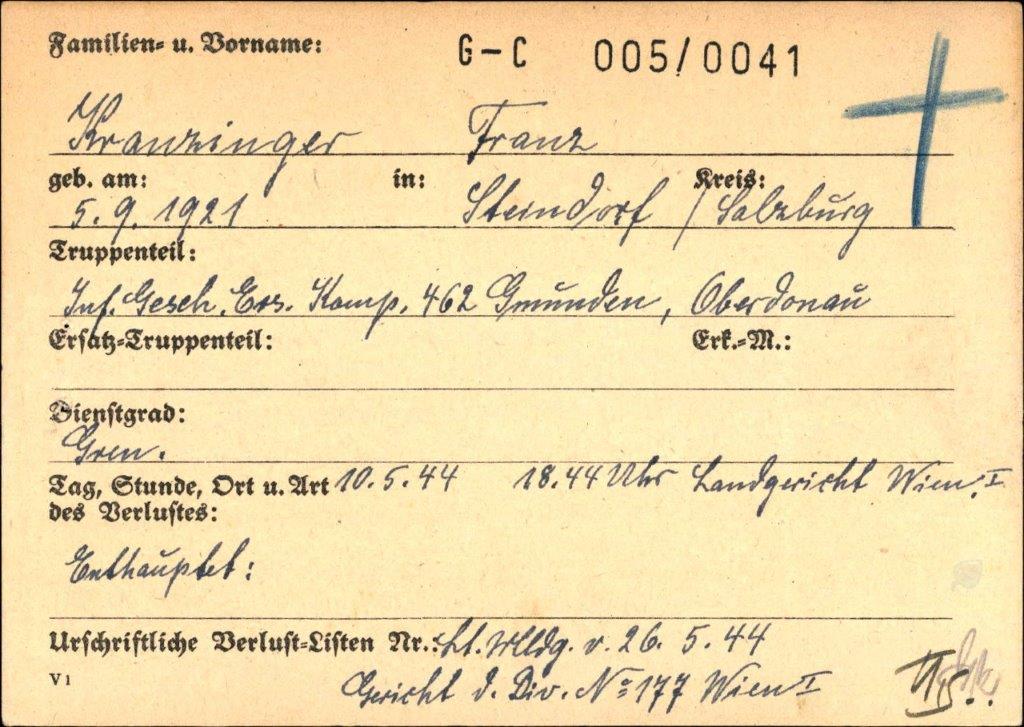 Familien- u. Vorname: G-C 005/0041
Kranzinger Franz
geb. am: in: Kreis:
5.9.1921 Steindorf / Salzburg
Truppenteil:
Inf. Gesch. Ers. Komp. 462 Gmunden, Oberdonau
Ersatz-Truppenteil: Erk.-M.:
Dienstgrad:
Gren.
Tag, Stunde, Ort u. Art 10.5.44 18.44 Uhr Landgericht Wien I
des Verlustes:
Enthauptet:
Urschriftliche Verlust-Listen Nr.: Lt. Mldg. v. 26.5.44
V1 Gericht d. Div. No 177 Wien I